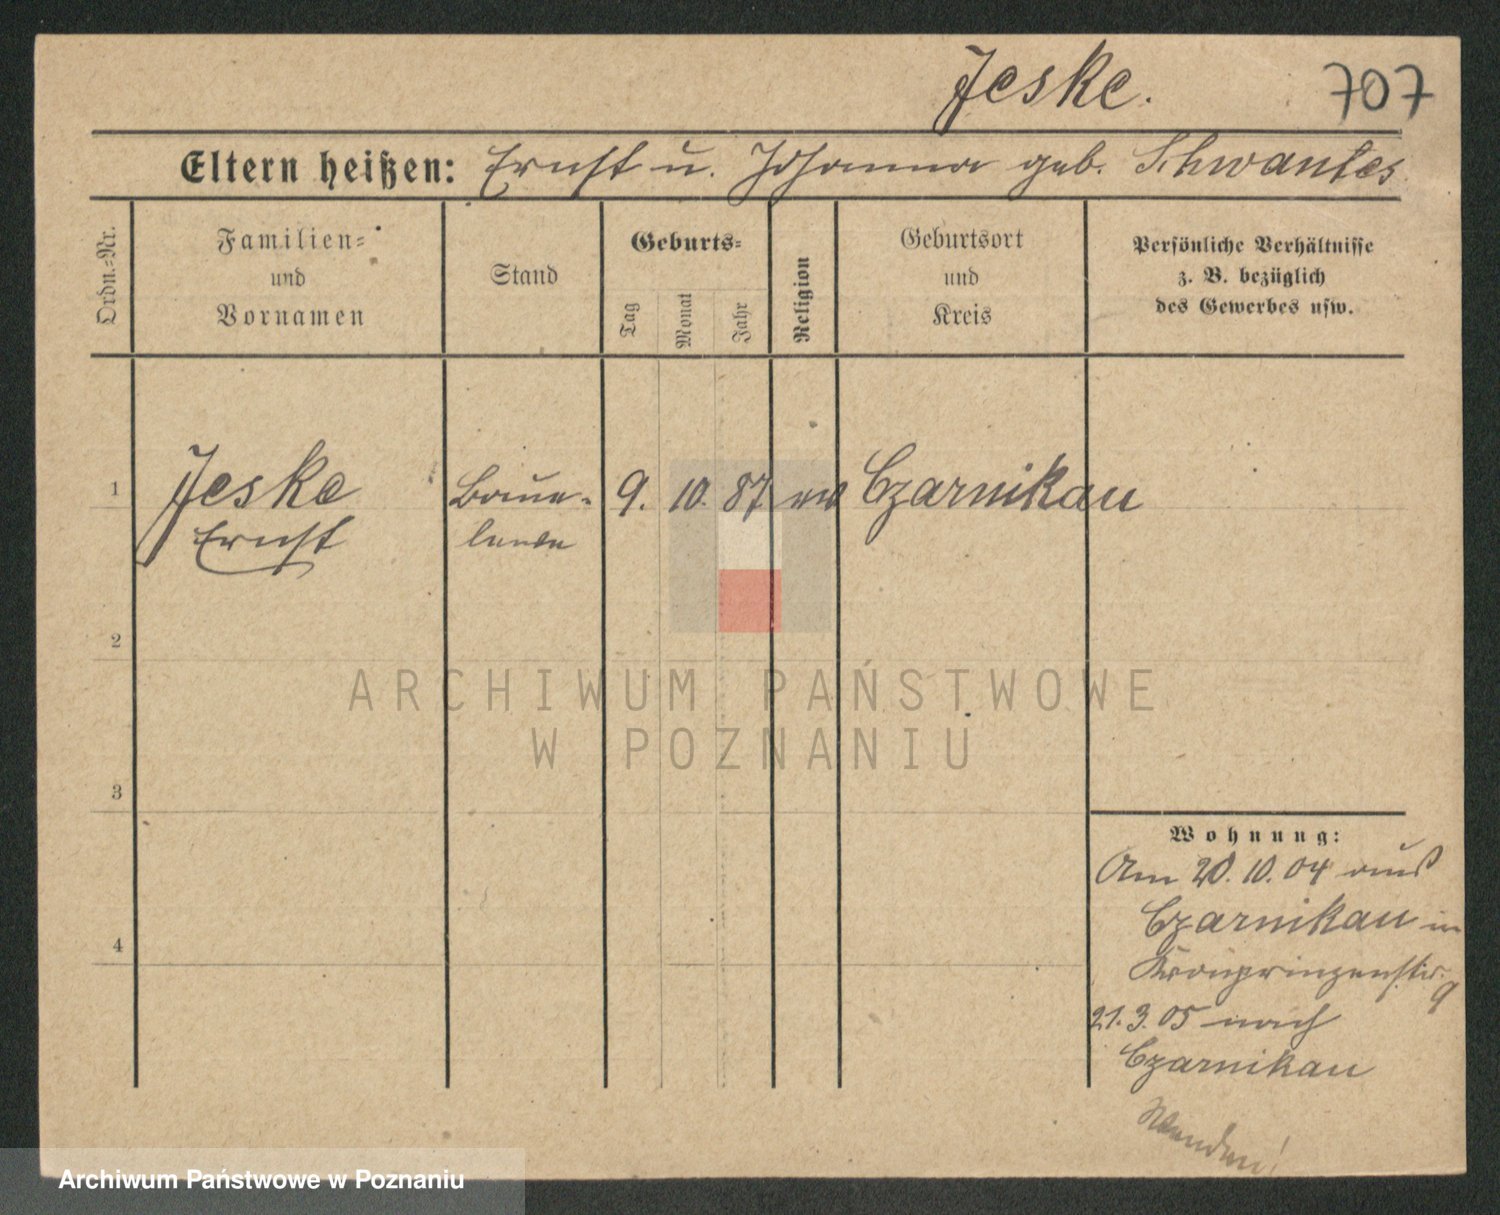 Jeske.
707
Eltern heißen: Ernst u. Johanna geb. Schwantes
Ordn.-Nr.
Familien-
und
Vornamen
Stand
Geburts-
Tag
Monat
Jahr
Religion
Geburtsort
und
Kreis
Persönliche Verhältnisse
z. B. bezüglich
des Gewerbes usw.
1 Jeske 9. 10. 87 ev Czarnikau
Ernst
2
3
4
ARCHIWUM PAŃSTWOWE
W POZNANIU
Wohnung:
Am 20. 10. 04 aus
Czarnikau in
Kronprinzenstr.
9
21. 3. 05 nach
Czarnikau
Wenden!
Archiwum Państwowe w Poznaniu